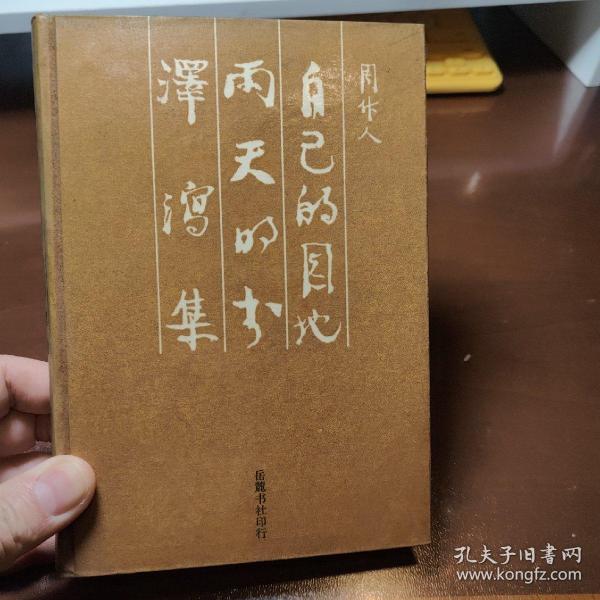 周作人
自己的园地
雨天的书
澤瀉集
岳麓书社印行
孔夫子旧書网
www.kongfz.com